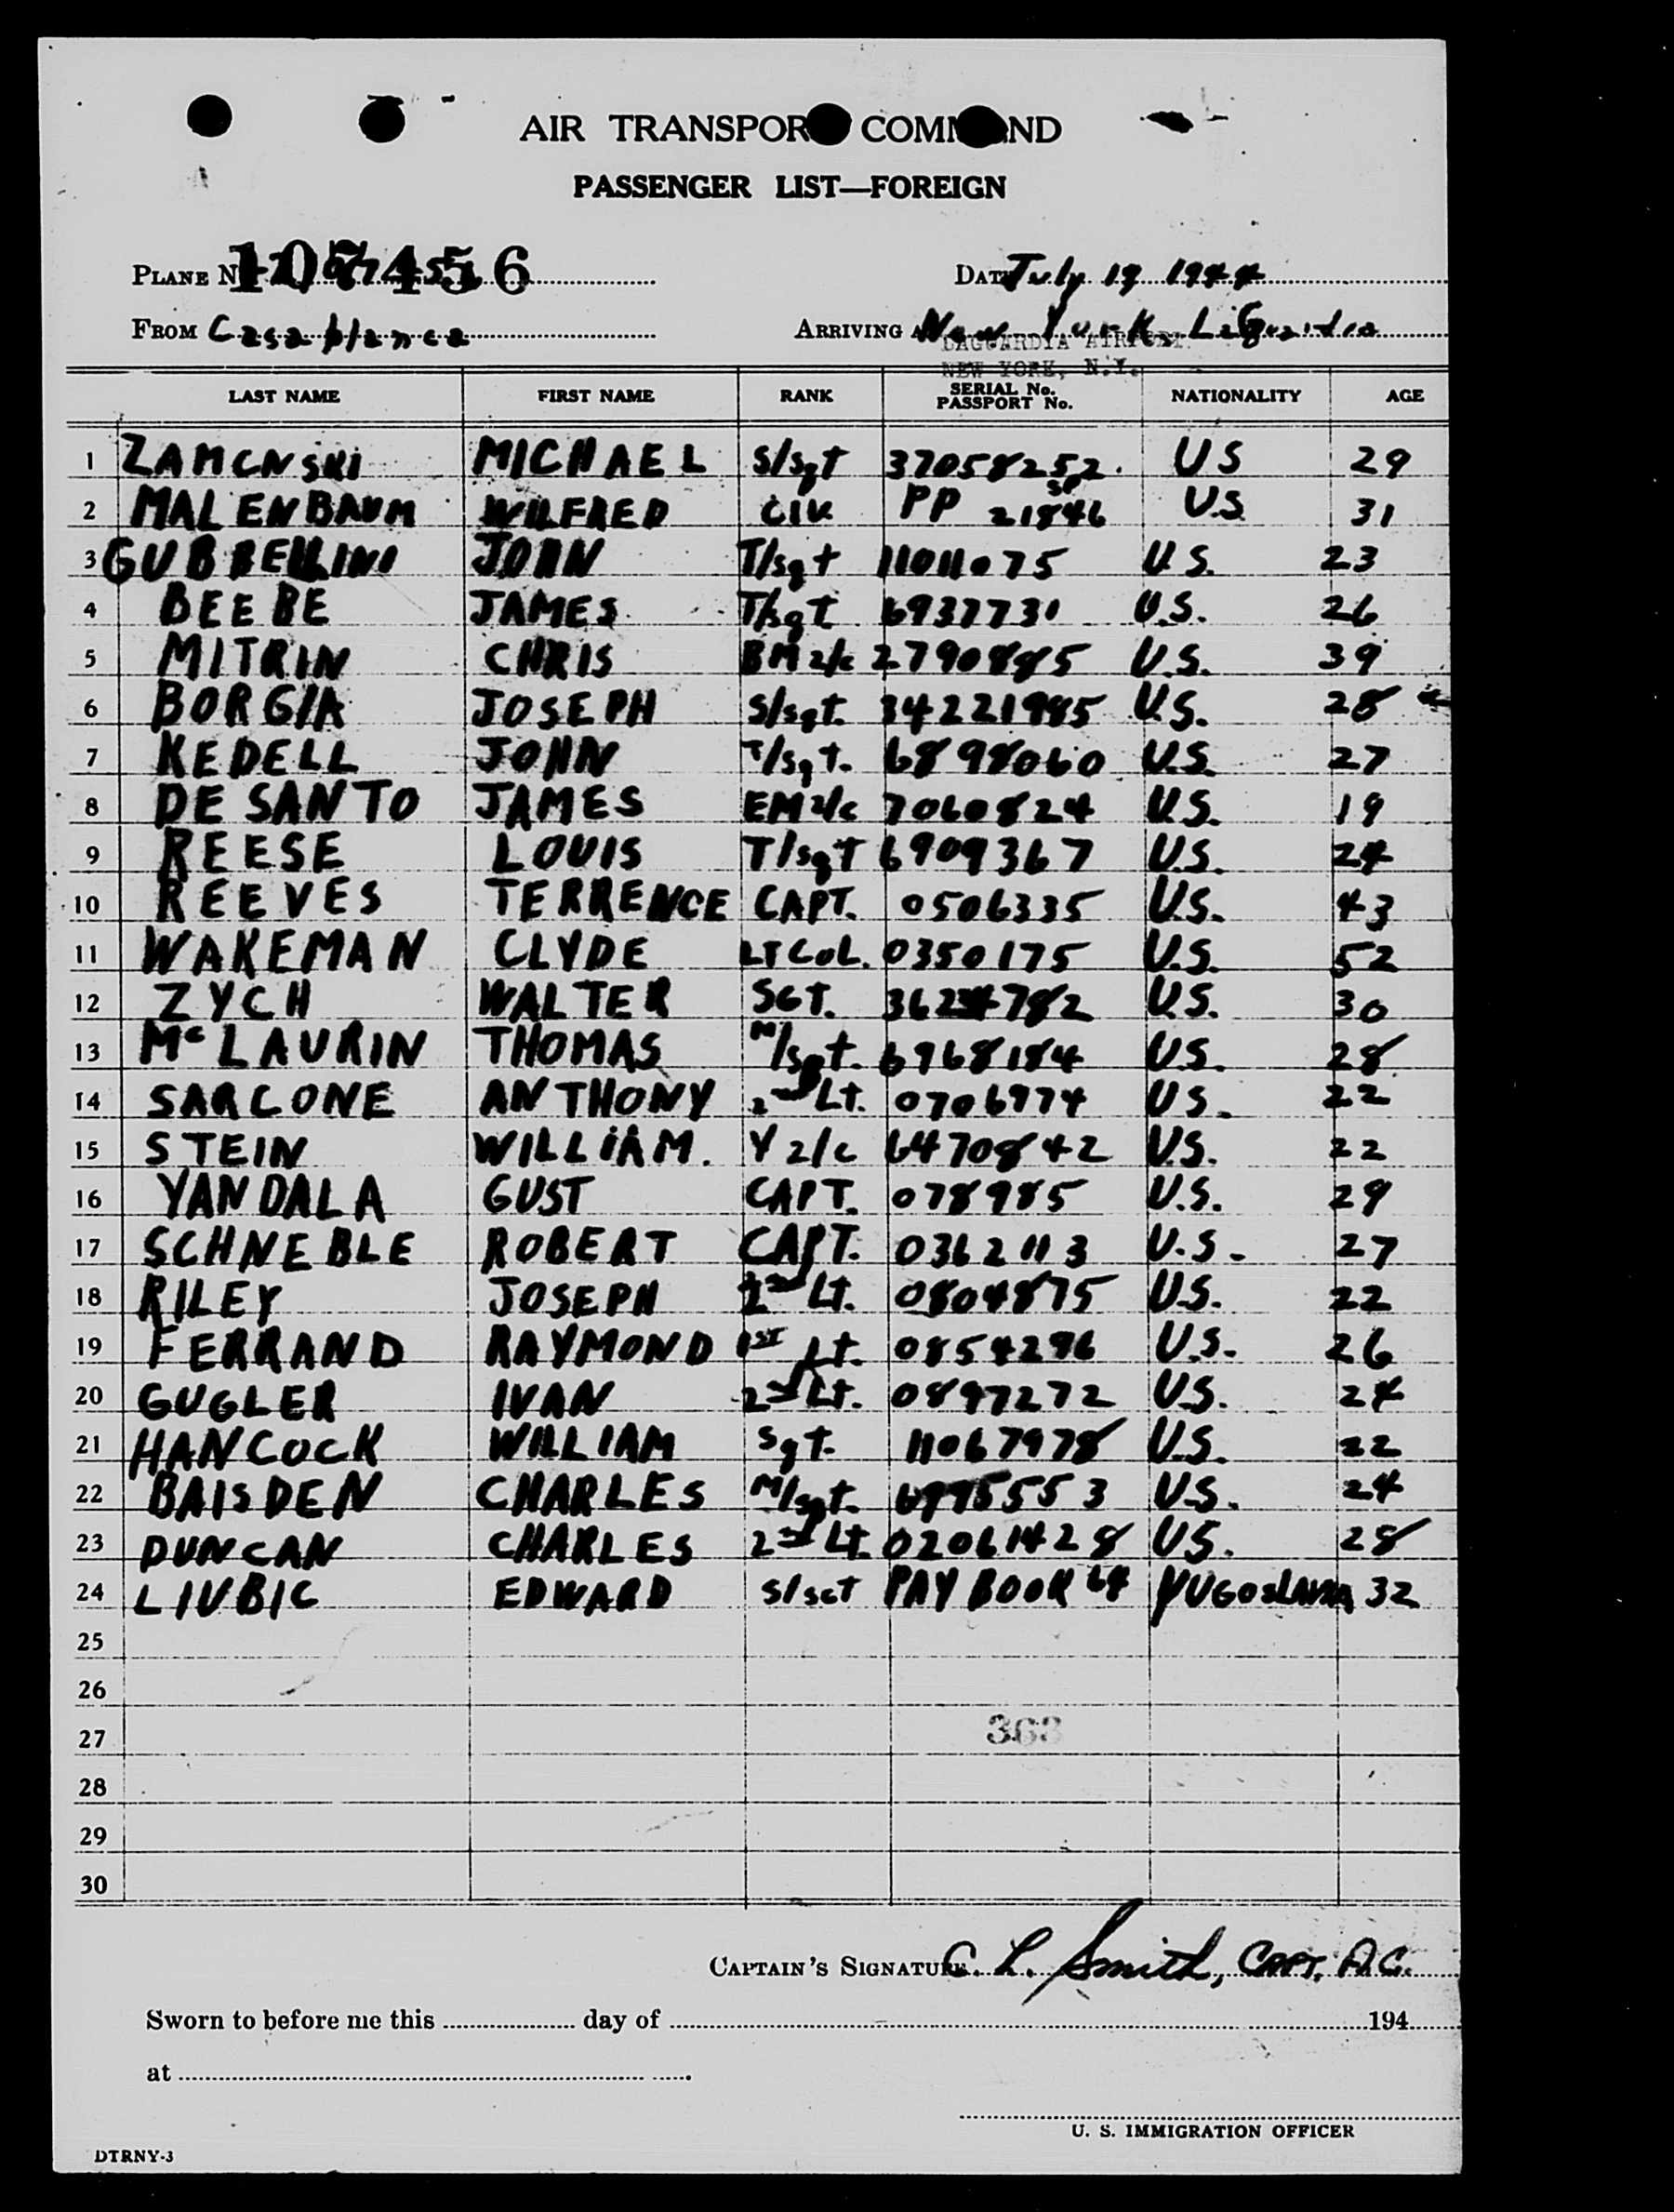 AIR TRANSPORT COMMAND
PASSENGER LIST—FOREIGN
107456
PLANE No. DATE July 19 1944
FROM Casablanca ARRIVING AT New York, LaGuardia
LAGUARDIA AIRPORT
NEW YORK, N.Y.
LAST NAME FIRST NAME RANK SERIAL No. PASSPORT No. NATIONALITY AGE
1 ZAMCNSKI MICHAEL S/Sgt 37058252 US 29
2 MALENBAUM WILFRED Clk PP SP 21846 U.S. 31
3 GUBBELLINI JOHN T/sgt 11011075 U.S. 23
4 BEEBE JAMES T/sgt 6937731 U.S. 26
5 MITRIN CHRIS BM 2/c 2790885 U.S. 39
6 BORGIA JOSEPH S/sgt. 34221985 U.S. 28
7 KEDELL JOHN T/sgt. 6898060 U.S. 27
8 DE SANTO JAMES EM 2/c 7060824 U.S. 19
9 REESE LOUIS T/sgt 6909367 U.S. 24
10 REEVES TERRENCE CAPT. 0506335 U.S. 43
11 WAKEMAN CLYDE LT COL. 0350175 U.S. 52
12 ZYCH WALTER SGT. 36234782 U.S. 30
13 McLAURIN THOMAS M/sgt. 6968184 U.S. 28
14 SARCONE ANTHONY 2nd Lt. 0706974 US. 22
15 STEIN WILLIAM. Y 2/c 6470842 U.S. 22
16 YANDALA GUST CAPT. 078985 U.S. 29
17 SCHNEBLE ROBERT CAPT. 0362113 U.S. 27
18 RILEY JOSEPH 2nd Lt. 0804875 U.S. 22
19 FERRAND RAYMOND 1ST Lt. 0854296 U.S. 26
20 GUGLER IVAN 2nd Lt. 0897272 U.S. 24
21 HANCOCK WILLIAM Sgt. 11067978 U.S. 22
22 BAISDEN CHARLES M/sgt. 6995553 U.S. 24
23 DUNCAN CHARLES 2nd Lt. 02061428 US. 28
24 LIVBIC EDWARD S/SGT PAY BOOK 64 YUGOSLAVIA 32
25
26
27 363
28
29
30
CAPTAIN'S SIGNATURE C. L. Smith, CAPT. A.C.
Sworn to before me this day of 194
at
U. S. IMMIGRATION OFFICER
DTRNY-3